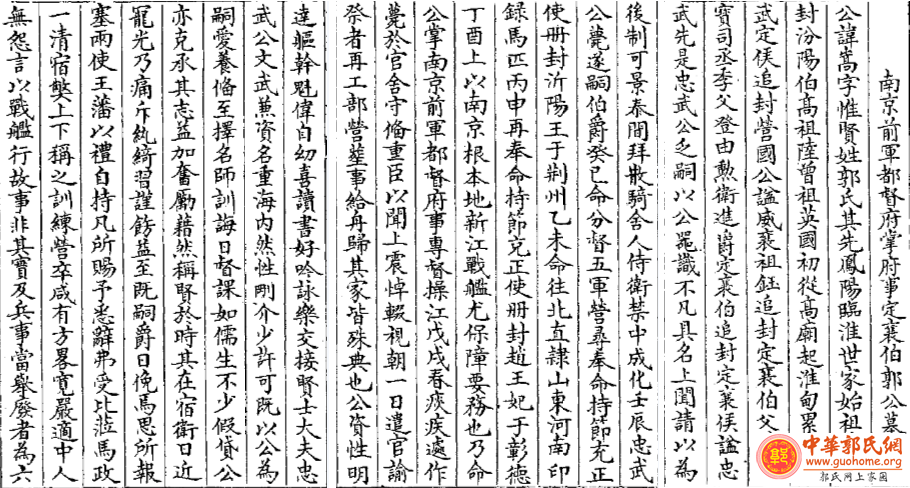 南京前軍都督府掌府事定襄伯郭公墓
公諱嵩字惟賢姓郭氏其先鳳陽臨淮世家始祖
封汾陽伯高祖陸曾祖英國初從高廟起淮甸累
武定侯追封營國公謚威襄祖鈺追封定襄伯父
寶司丞季父登由勲衛進爵定襄伯追封定襄侯謚忠
武先是忠武公乏嗣以公器識不凡具名上聞請以為
後制可景泰間拜散騎舍人侍衛禁中成化壬辰忠武
公薨遂嗣伯爵癸巳命分督五軍營尋奉命持節充正
使冊封沂陽王于荆州乙未命往北直隷山東河南印
録馬匹丙申再奉命持節充正使冊封趙王妃于彰德
丁酉上以南京根本地新江戰艦尤保障要務也乃命
公掌南京前軍都督府事專督操江戊戌春痰疾遽作
薨於官舍守備重臣以聞上震悼輟視朝一日遣官諭
祭者再工部營塟事給舟歸其家皆殊典也公資性明
達軀幹魁偉自幼喜讀書好吟詠樂交接賢士大夫忠
武公文武兼資名重海内然性剛介少許可既以公為
嗣愛養俻至擇名師訓誨日督課如儒生不少假貸公
亦克承其志益加奮勵藉然稱賢於時其在宿衛日近
寵光乃痛斥紈綺習謹飭益至既嗣爵日俛焉思所報
塞兩使王藩以禮自持凡所賜予悉辭弗受比涖馬政
一清宿弊上下稱之訓練營卒咸有方畧寛嚴適中人
無怨言以戰艦行故事非其實及兵事當舉廢者為六
中華郭氏網
www.guohome.org
郭氏网上家园